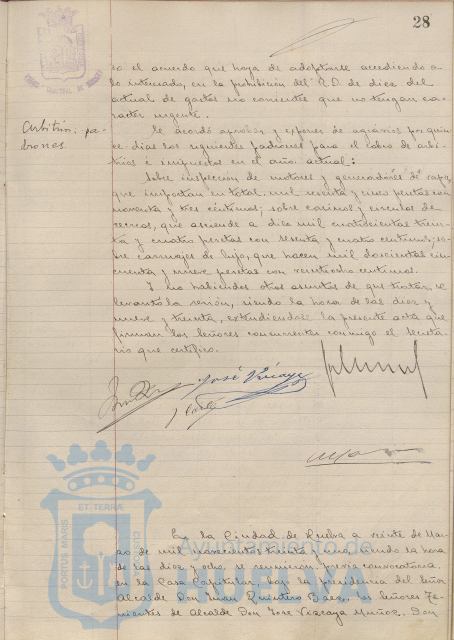 28
so el acuerdo que haya de adoptarse accediendo a
lo interesado, en la prohibición del R.D. de diez del
actual de gastos no corrientes que no tengan ca-
racter urgente.
Arbitrios: pa-
drones.
Se acordó aprobar y exponer de agravios por quin-
ce dias los siguientes padrones para el cobro de arbi-
trios é impuestos en el año actual:
Sobre inspeccion de motores y generadores de vapor,
que importan en total, mil sesenta y cinco pesetas con
noventa y tres céntimos; sobre casinos y circulos de
recreos, que asciende a diez mil cuatrocientas trein-
ta y cuatro pesetas con sesenta y cuatro centimos; so-
bre carruajes de lujo, que hacen mil doscientas cin-
cuenta y nueve pesetas con veintiocho centimos.
Y no habiendo otros asuntos de que tratar, se
levantó la sesión, siendo la hora de las diez y
nueve y treinta, extendiendose la presente acta que
firman los señores concurrentes conmigo el Secreta-
rio que certifico.
José Vizcaya
En la Ciudad de Huelva a veinte de Ma-
de mil novecientos treinta y uno, siendo la hora
de las diez y ocho, se reunieron, previa convocatoria,
en la Casa Capitular, bajo la presidencia del Señor
Alcalde Don Juan Quintero Baez, los Señores Te-
nientes de Alcalde Don José Vizcaya Muñoz, Don
PORTUS MARIS
ET TERRÆ
CUSTODIA
Ayuntamiento de
HUELVA